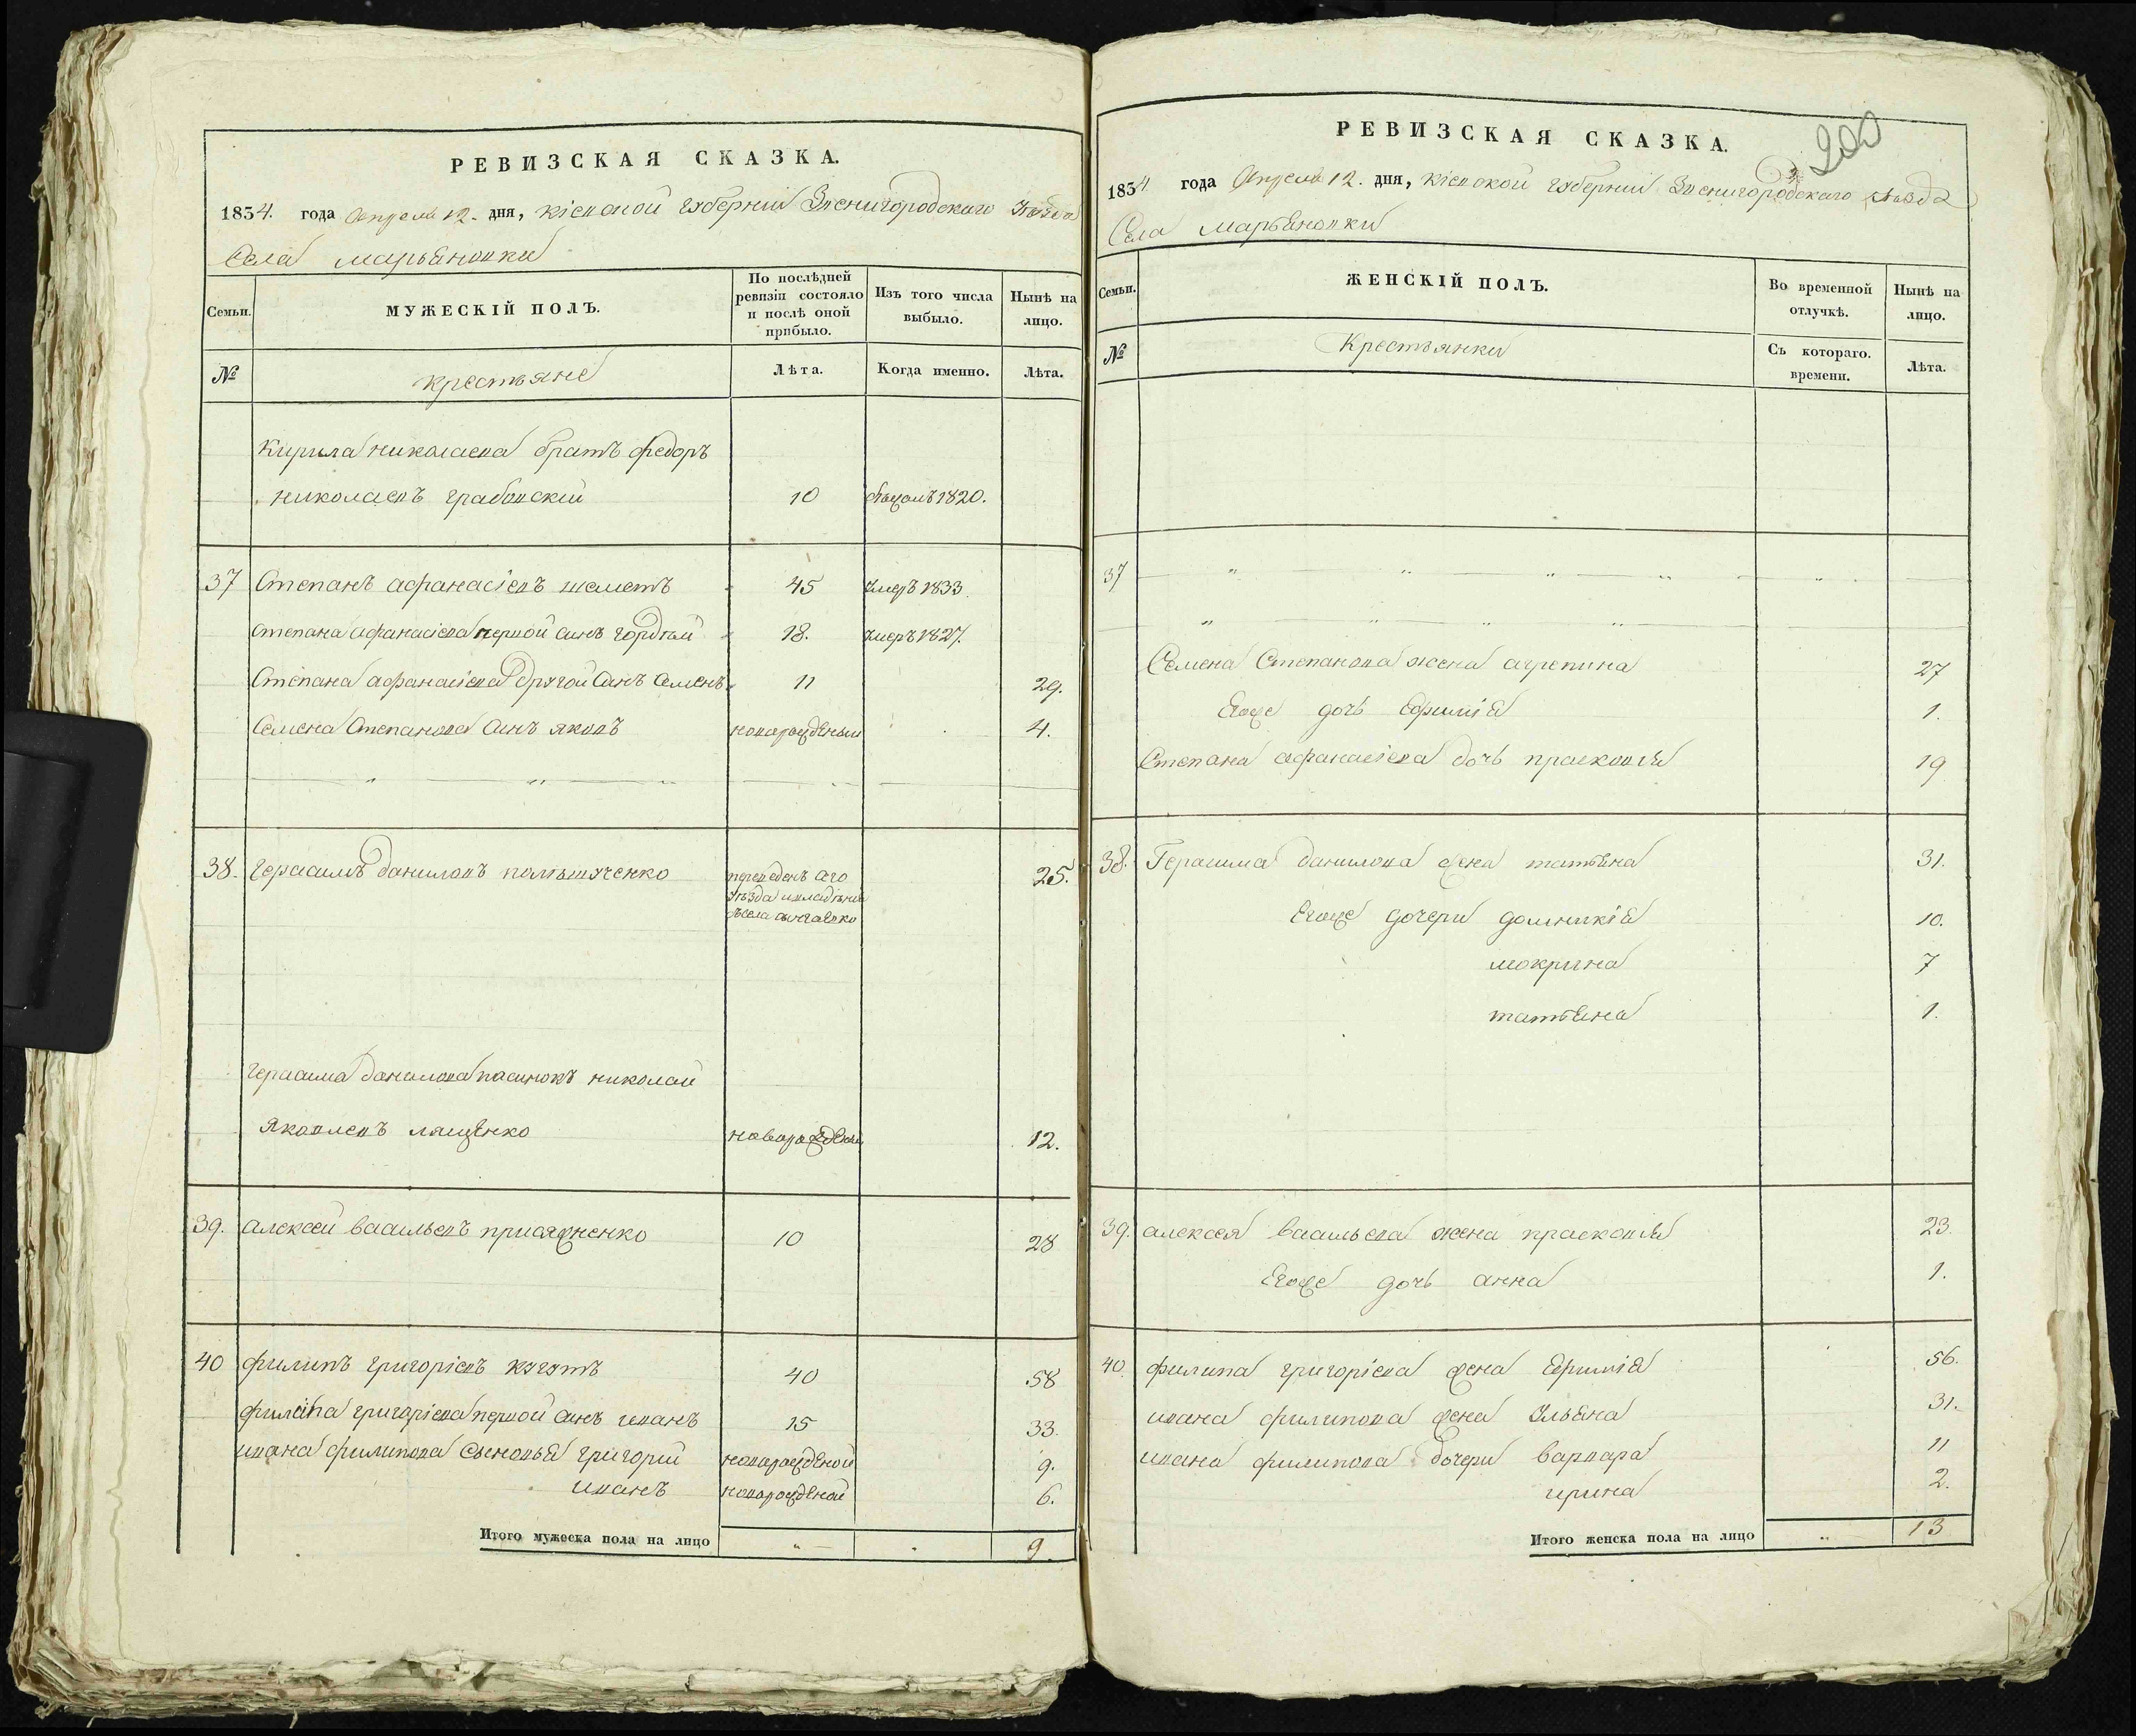 РЕВИЗСКАЯ СКАЗКА.
1834. года Апреля 12. дня, Кіевской губерніи Звенигородскаго уѣзда
Села Марьяновки
Семьи. МУЖЕСКІЙ ПОЛЪ. По послѣдней ревизіи состояло и послѣ оной прибыло. Изъ того числа выбыло. Нынѣ на лицо.
№ крестьяне Лѣта. Когда именно. Лѣта.
Кирила николаева братъ федоръ
николаевъ грабовскій 10 1820.
37 Степанъ афанасіевъ шеметъ 45 умеръ 1833.
степана афанасіева первой синъ гордѣй 18. умеръ 1827.
Степана афанасіева другой синъ семенъ 11 29.
Семена Степанова синъ яковъ новорожденый 4.
38. герасимъ даниловъ 25.
переведенъ сего
уѣзда
герасима данилова пасинокъ николай
Яковлевъ лященко новорожденый 12.
39. алексей васильевъ присяжненко 10 28
40 филипъ григоріевъ кугутъ 40 58
филипа григоріева первой синъ иванъ 15 33.
ивана филипова сыновья григорій новорожденой 9.
иванъ новорожденой 6.
Итого мужеска пола на лицо 9.
РЕВИЗСКАЯ СКАЗКА.
200
1834 года Апреля 12. дня, Кіевской губерніи Звенигородскаго уѣзда
Села Марьяновки
Семьи. ЖЕНСКІЙ ПОЛЪ. Во временной отлучкѣ. Нынѣ на лицо.
№ Крестьянки Съ котораго. времени. Лѣта.
37
Семена Степанова жена агрепина 27
Егоже дочь Ефимія 1.
Степана афанасіева дочь прасковія 19
38. Герасима данилова жена татьяна 31.
Егоже дочери домникія 10.
мокрина 7
татьяна 1.
39. алексея васильева жена прасковія 23.
Егоже дочь анна 1.
40. филипа григоріева жена Ефимія 56.
ивана филипова жена Ульяна 31.
ивана филипова дочери варвара 11
ирина 2.
Итого женска пола на лицо 13